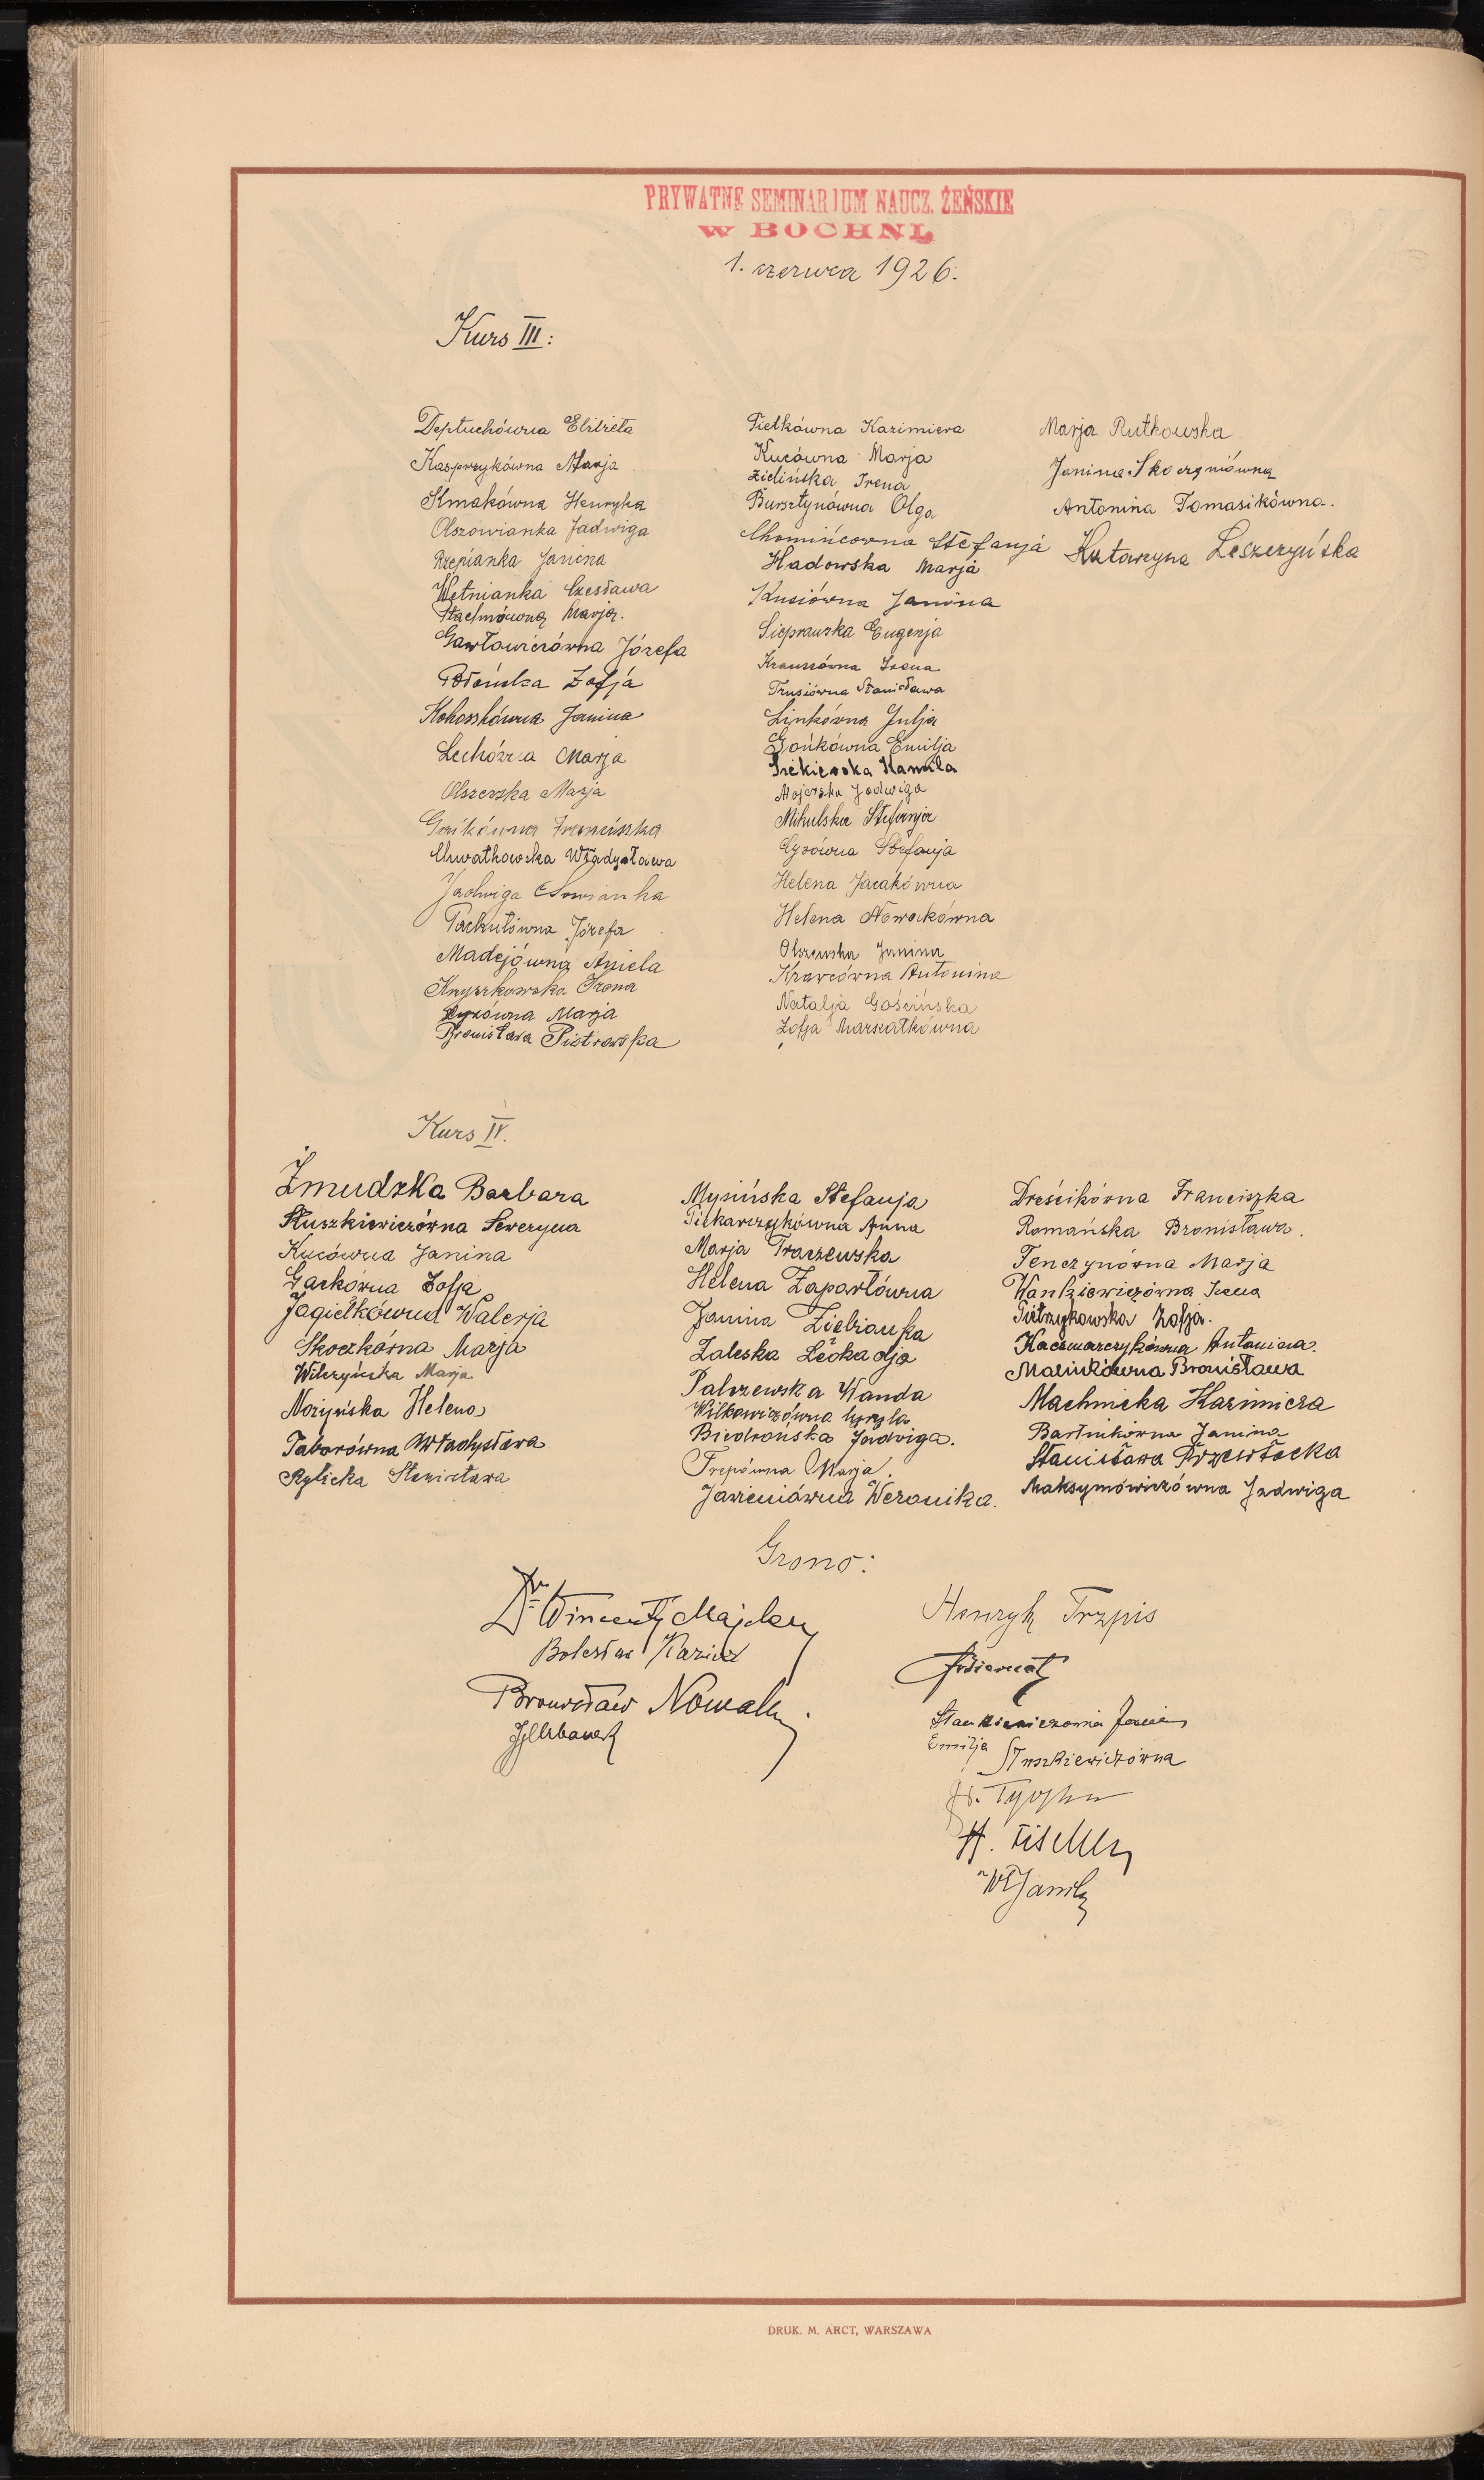 PRYWATNE SEMINARJUM NAUCZ. ŻEŃSKIE
W BOCHNI.
1. czerwca 1926.
Kurs III:
Deptuchówna Elżbieta
Kasprzykówna Marja
Klmakówna Henryka
Olszowianka Jadwiga
Rzepianka Janina
Wętnianka Czesława
Stachnówna Marja.
Gawłowiczówna Józefa
Błońska Zofja
Kokoszkówna Janina
Lechówna Marja
Olszewska Marja
Gaikówna Franciszka
Chwatkowska Władysława
Jadwiga Słowianka
Pachutówna Józefa
Madejówna Aniela
Knyszkowska Irena
Łyzówna Marja
Bronisława Piotrowska
Fietkówna Kazimiera
Kucówna Marja
Zielińska Irena
Bursztynówna Olga
Chomińcowna Stefanja
Hadowska Marja
Kusiówna Janina
Sieprawska Eugenja
Kraussówna Irena
Trusiówna Stanisława
Linkówna Julja
Gońkówna Emilja
Kamila
Majerska Jadwiga
Mikulska Stefanja
Łyzówna Stefanja
Helena Jacakówna
Helena Nowakówna
Olszewska Janina
Krawcówna Antonina
Natalja Gościńska
Zofja Marszałkówna
Marja Rutkowska
Janina Skoczyniówna
Antonina Tomasikówna.
Katarzyna Leszczyńska
Kurs IV.
Żmudzka Barbara
Słuszkiewiczówna Seweryna
Kucówna Janina
Gackówna Zofja
Jagiełkówna Walerja
Skoczkówna Marja
Wilczyńska Marja
Nożyńska Helena
Taborówna Władysława
Rylicka Stanisława
Mysińska Stefanja
Piekarczykówna Anna
Marja Traczewska
Helena Zapartówna
Janina Zielianka
Zaleska Leokadja
Palczewska Wanda
Wilkowiczówna Cyryla
Biedrońska Jadwiga.
Frepówna Marja.
Jawieniówna Weronika.
Dreścikówna Franciszka
Romańska Bronisława.
Tenczynówna Marja
Wankiewiczówna Irena
Pietrzykowska Zofja.
Kaczmarczykówna Antonina.
Malinkówna Bronisława
Machnicka Kazimiera
Bartnikówna Janina
Stanisława Przewłocka
Maksymowiczówna Jadwiga
Grono:
Dr Wincenty Majcher
Bolesław
Bronisław Nowak.
JUrbanek
Henryk Trzpis
Stankiewiczowa
Emilja Słuszkiewiczówna
H. Fischer